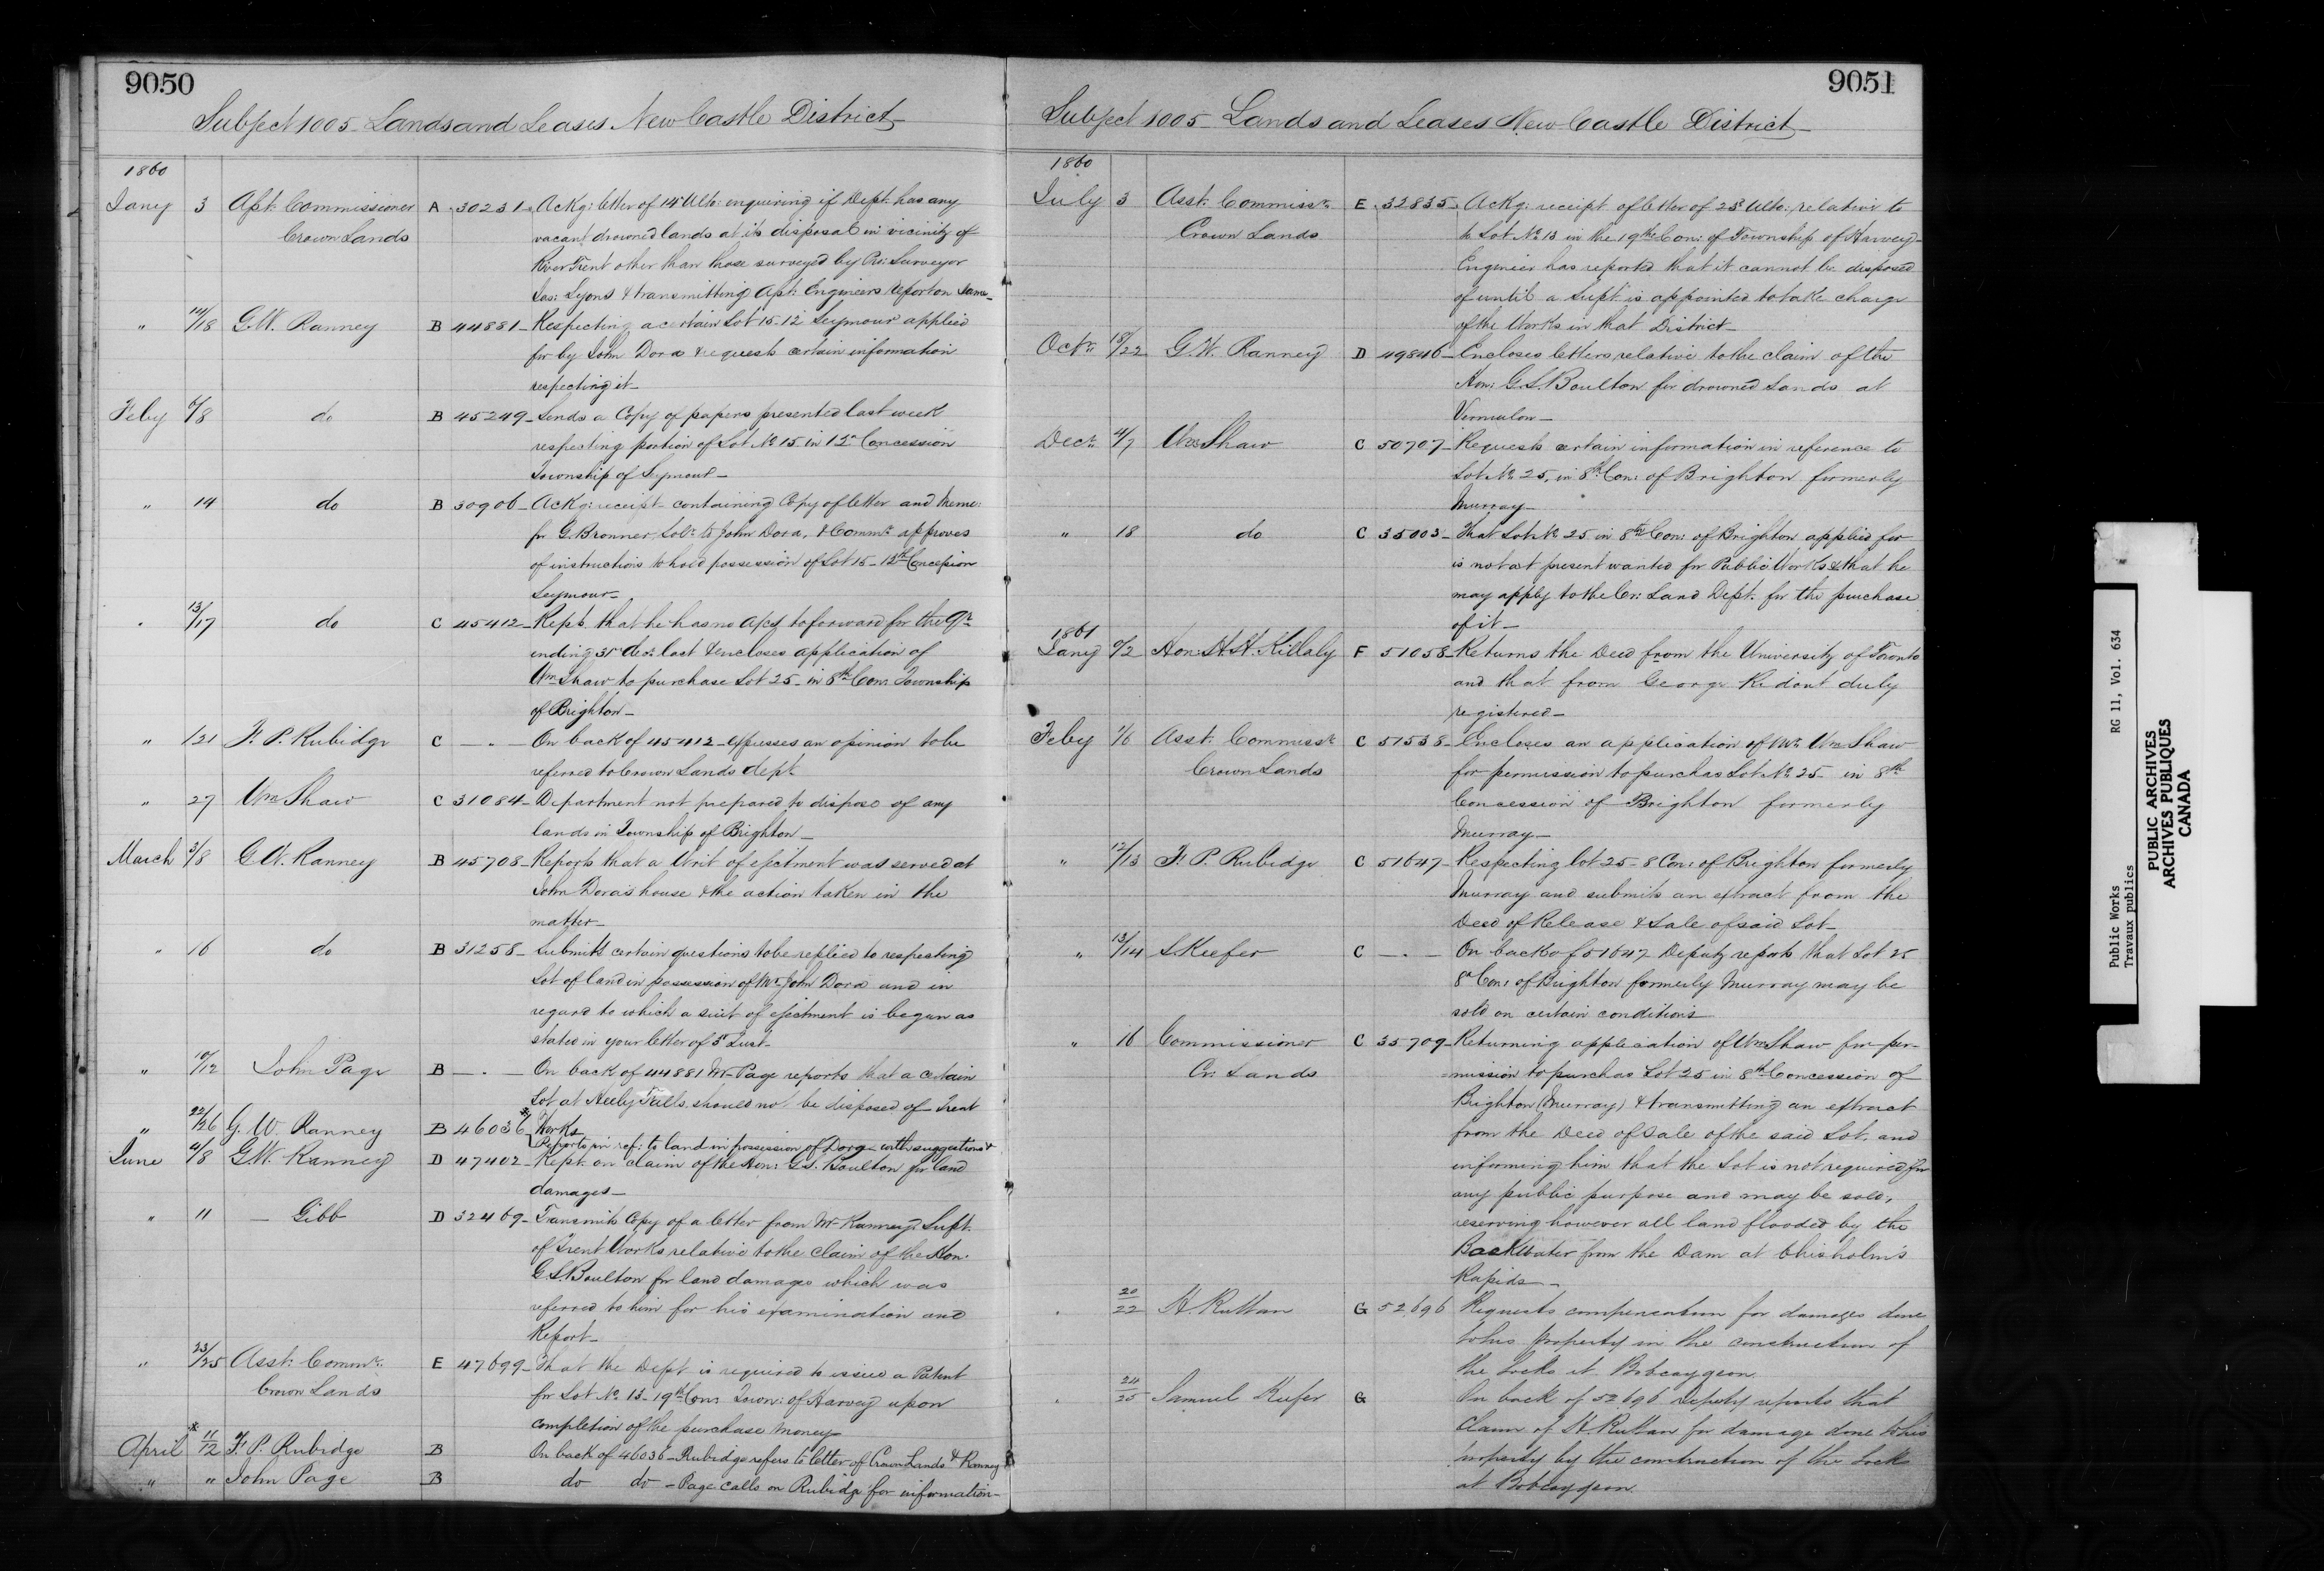 9050
Subject 1005 - Lands and Leases New Castle District
1860
Jany 3 Asst: Commissioner A . 30231 . Ackg: letter of 14th Ulto: enquiring if Dept. has any
Crown Lands vacant drowned lands at its disposal in vicinity of
River Trent other than those surveyed by Pro: Surveyor
Jas: Lyons & transmitting Asst: Engineers report on same -
" 14/18 G.W. Ranney B 44881 - Respecting a certain Lot 15-12 Seymour applied
for by John Dora & requests certain information
respecting it -
Feby 6/8 do B 45249 - Sends a Copy of papers presented last week
respecting portion of Lot No 15 in 12th Concession
Township of Seymour -
" 14 do B 30906 - Ackg: receipt containing Copy of letter and Memo:
fr G. Bronner, Solr. to John Dora, & Commr. approves
of instructions to hold possession of Lot 15 - 12th Concession
Seymour -
" 13/17 do C 45412 - Rept. that he has no a/cs to forward for the Qr.
ending 31st Decr. last & encloses application of
Wm Shaw to purchase Lot 25 - in 8th Con: Township
of Brighton -
" /21 F. P. Rubidge C - " - On back of 45412 - expresses an opinion to be
referred to Crown Lands dept.
" 27 Wm Shaw C 31084 - Department not prepared to dispose of any
lands in Township of Brighton -
March 3/8 G.W. Ranney B 45708 - Reports that a Writ of ejectment was served at
John Dora's house & the action taken in the
matter -
" 16 do B 31258 - Submits certain questions to be replied to respecting
Lot of land in possession of Mr John Dora and in
regard to which a suit of ejectment is began as
stated in your letter of 3rd Inst -
" 10/12 John Page B - " - On back of 44881 Mr Page reports that a certain
Lot at Heely Falls should not be disposed of Trent
Works
" 22/26 G. W. Ranney B 46036 * Reports in ref: to land in possession of Dora - with suggestions &
June 4/8 G.W. Ranney D 47402 - Rept. on claim of the Hon: G.S. Boulton for land
damages -
" 11 - Gibb D 32469 - Transmits Copy of a letter from Mr Ranney Supt.
of Trent Works relative to the Claim of the Hon.
G.S. Boulton for land damages which was
referred to him for his examination and
Report -
" 23/25 Asst: Commr. E 47699 - That the Dept is required to issue a Patent
Crown Lands for Lot No 13 - 19th Con: Town: of Harvey upon
completion of the purchase money
April * 11/12 F. P. Rubidge B On back of 46036 - Rubidge refers to letter of Crown Lands & Ranney
" " John Page B do do - Page calls on Rubidge for information -
9051
Subject 1005 - Lands and Leases New Castle District
1860
July 3 Asst: Commissr. E . 32835 . Ackg: receipt of letter of 23rd Ulto: relative to
Crown Lands to Lot No 13 in the 19th Con: of Township of Harvey -
Engineer has reported that it cannot be disposed
of until a Supt. is appointed to take charge
of the Works in that District -
Octr. 18/22 G.W. Ranney D 49846 - Encloses letters relative to the claim of the
Hon: G.S. Boulton for drowned Lands at
Decr. 4/7 Wm Shaw C 50707 - Requests certain information in reference to
Lot No 25, in 8th Con: of Brighton formerly
Murray -
" 18 do C 35003 - That Lot No 25 in 8th Con: of Brighton applied for
is not at present wanted for Public Works & that he
may apply to the Cr: Land Dept. for the purchase
of it -
1861
Jany /2 Hon: H.H. Killaly F 51058 - Returns the Deed from the University of Toronto
and that from George Ridout duly
registered -
Feby 1/6 Asst. Commissr. C 51538 - Encloses an application of Mr. Wm Shaw
Crown Lands for permission to purchas Lot No 25 - in 8th
Concession of Brighton formerly
Murray -
" 12/13 F. P. Rubidge C 51647 - Respecting lot 25 - 8 Con: of Brighton formerly
Murray and submits an extract from the
Deed of Release & Sale of said Lot -
" 13/14 S. Keefer C - " - On back of 51647 Deputy reports that Lot 25
8th Con: of Brighton formerly Murray may be
sold on certain conditions
" 16 Commissioner C 35709 - Returning application of Wm Shaw for per-
Cr: Lands mission to purchas Lot 25 in 8th Concession of
Brighton (Murray) & transmitting an extract
from the Deed of Sale of the said Lot, and
informing him that the Lot is not required for
any public purpose and may be sold,
reserving however all land flooded by the
Backwater from the Dam at Chisholm's
Rapids -
" 20/22 H. Ruttan G 52696 Requests compensation for damages done
to his property in the construction of
the Locks at Bobcaygeon
" 24/25 Samuel Keefer G On back of 52696 Deputy reports that
Claim of H. Ruttan for damage done to his
property by the construction of the Locks
at Bobcaygeon.
Public Works RG 11, Vol. 634
Travaux publics
PUBLIC ARCHIVES
ARCHIVES PUBLIQUES
CANADA